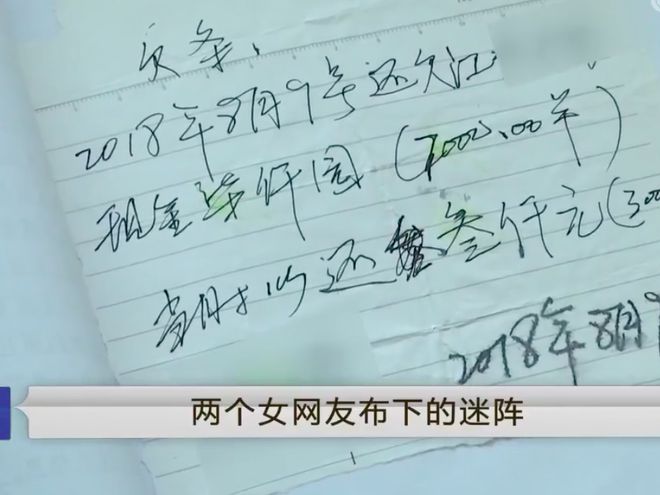 欠条,
2018年8月9号还欠江
现金柒仟园(7000.00羊)
当时以还叁仟元(300
2018年8月9
两个女网友布下的迷阵